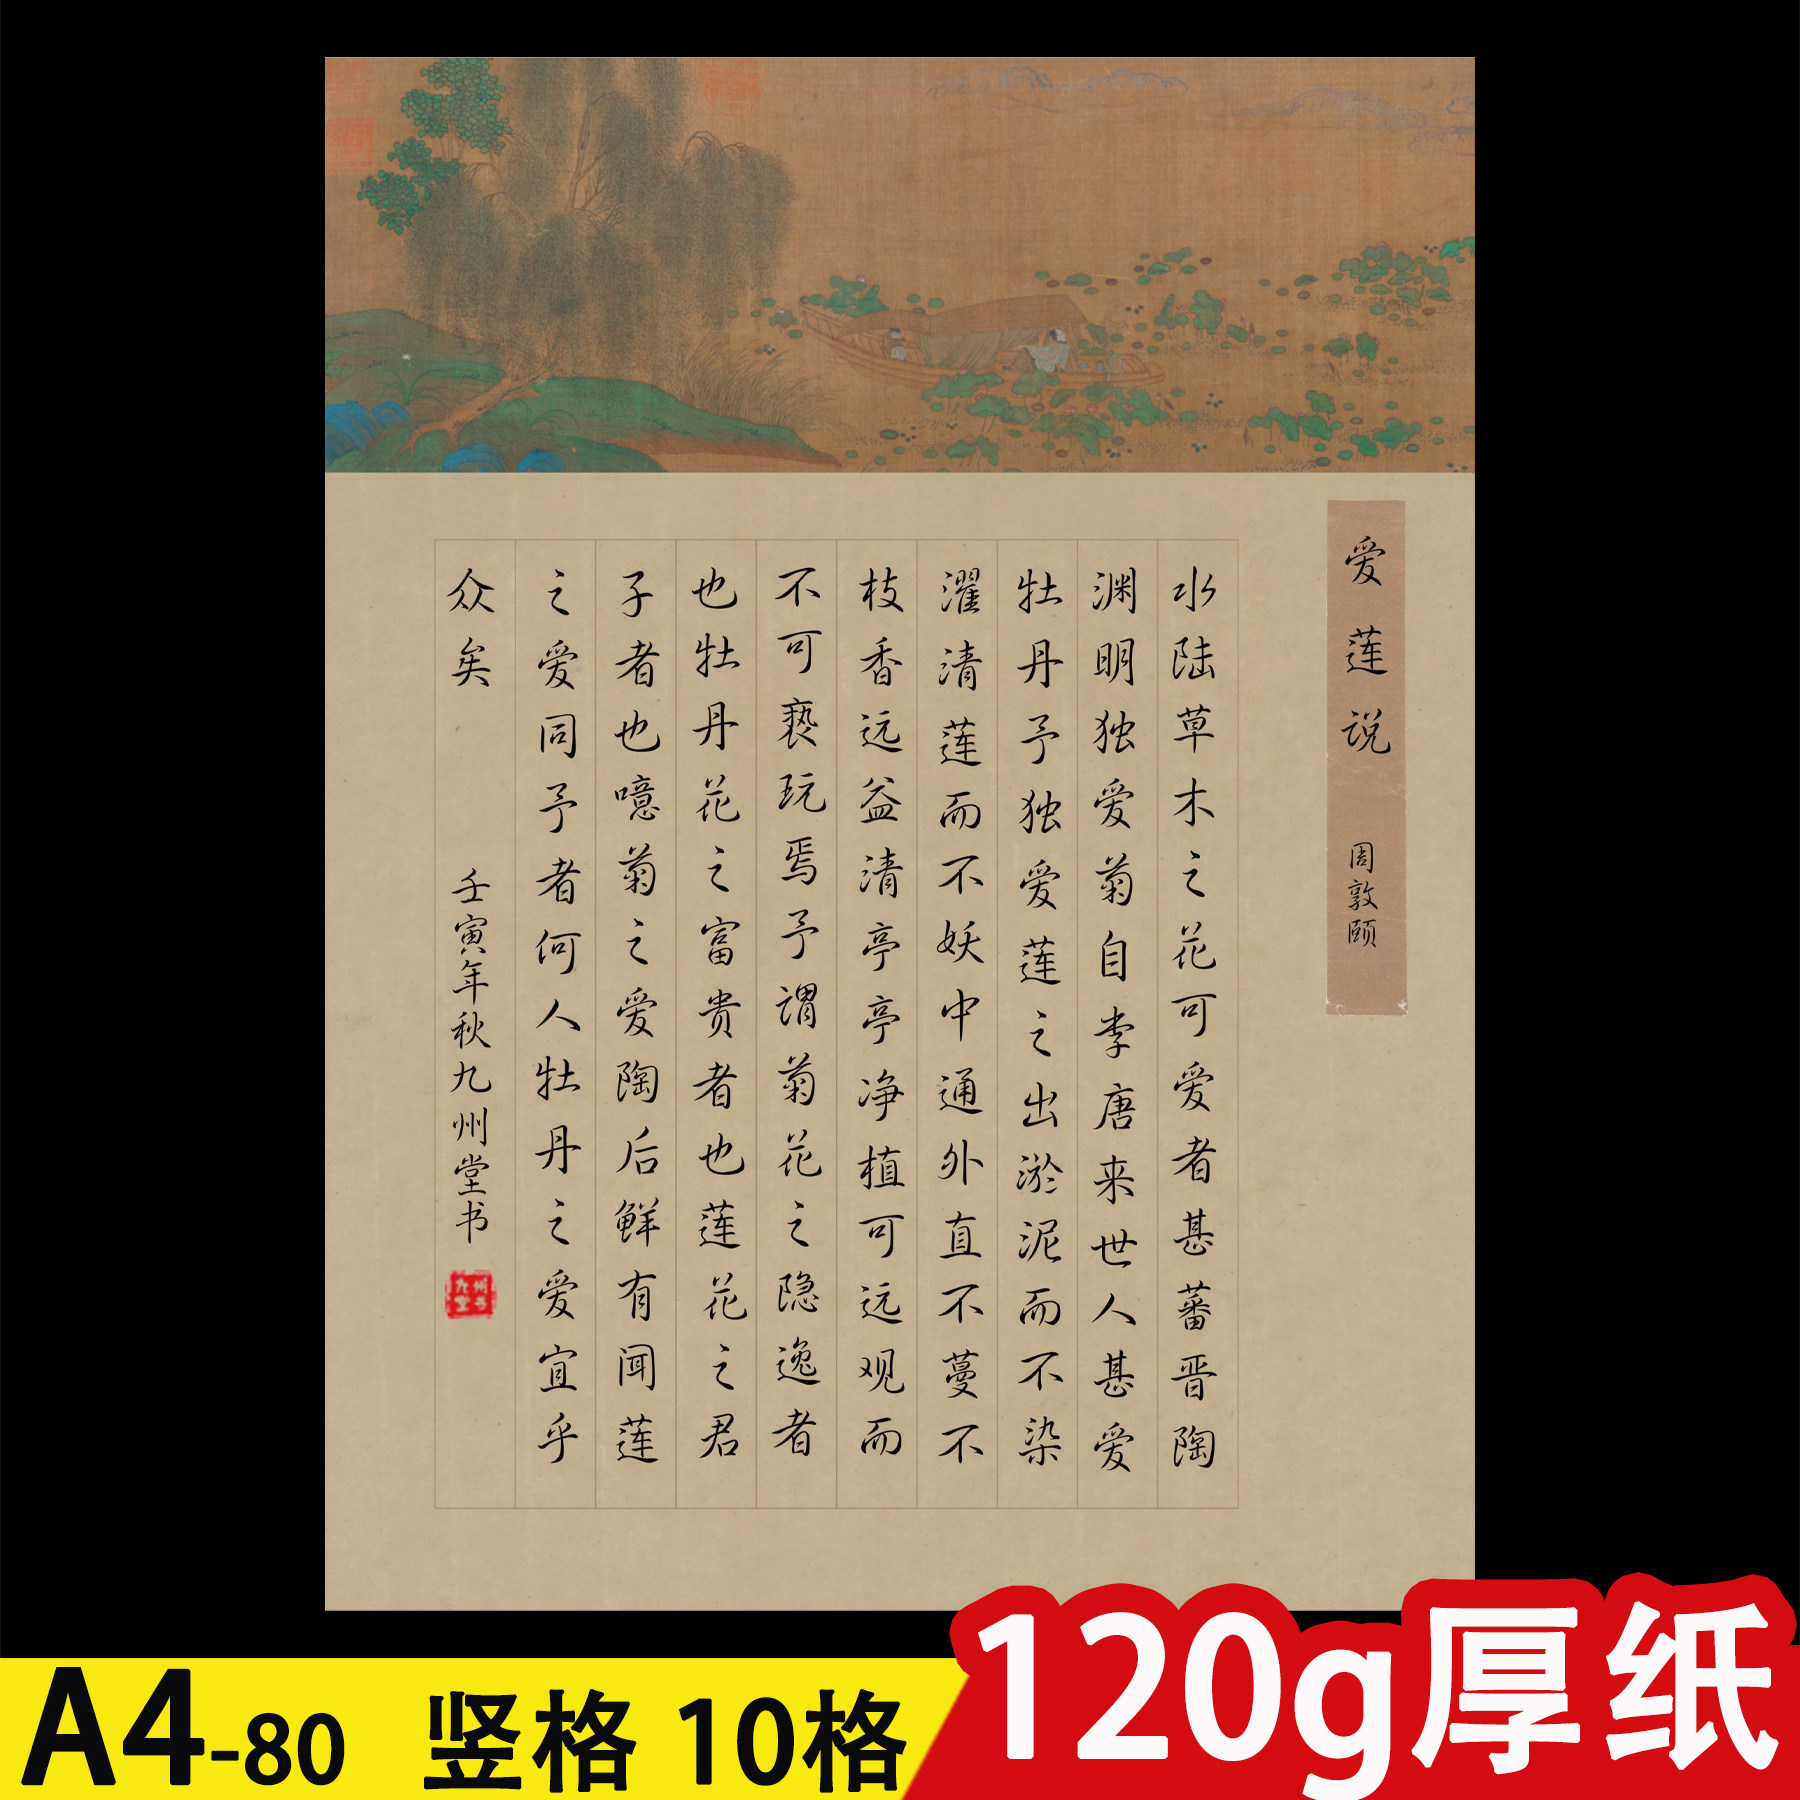 爱莲说 周敦颐
水陆草木之花可爱者甚蕃晋陶
渊明独爱菊自李唐来世人甚爱
牡丹予独爱莲之出淤泥而不染
濯清莲而不妖中通外直不蔓不
枝香远益清亭亭净植可远观而
不可亵玩焉予谓菊花之隐逸者
也牡丹花之富贵者也莲花之君
子者也噫菊之爱陶后鲜有闻莲
之爱同予者何人牡丹之爱宜乎
众矣 壬寅年秋九州堂书
A4-80 竖格 10格
120g厚纸